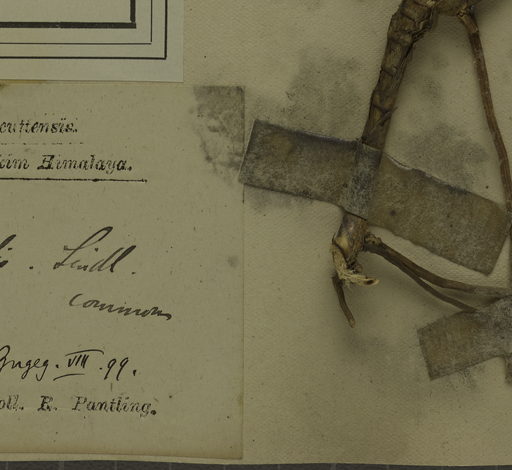 cuttensis.
kim Himalaya.
Lindl.
common
VIII. 99.
oll. R. Pantling.